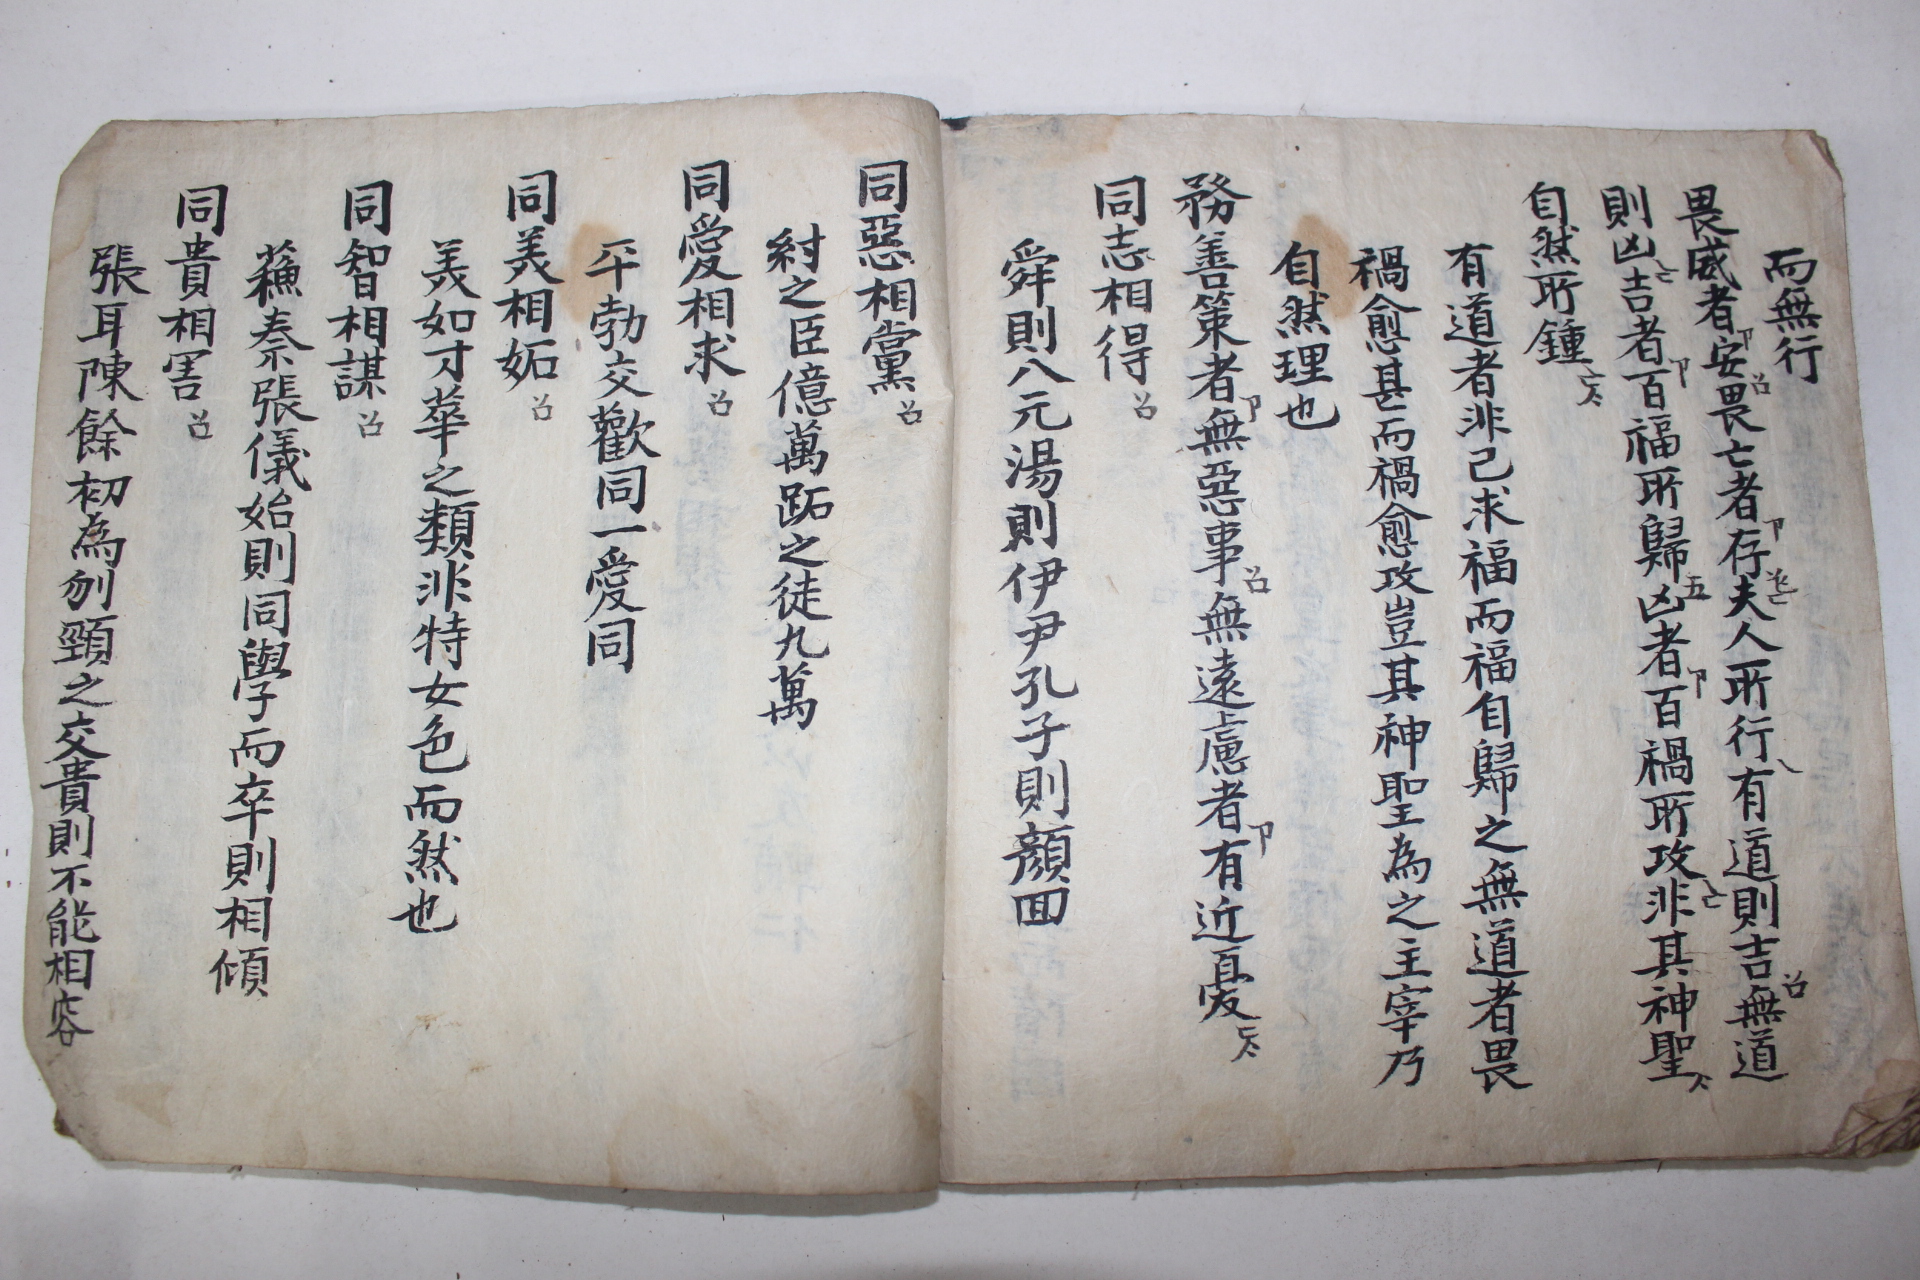 而無行
畏威者安畏亡者存夫人所行有道則吉無道
則凶吉者百福所歸凶者百禍所攻非其神聖
自然所鍾
有道者非己求福而福自歸之無道者畏
禍愈甚而禍愈攻豈其神聖為之主宰乃
自然理也
務善策者無惡事無遠慮者有近憂
同志相得
舜則八元湯則伊尹孔子則顔回
同惡相黨
紂之臣億萬跖之徒九萬
同愛相求
平勃交歡同一愛同
同美相妬
美如才華之類非特女色而然也
同智相謀
蘓秦張儀始則同學而卒則相傾
同貴相害
張耳陳餘初為刎頸之交貴則不能相容